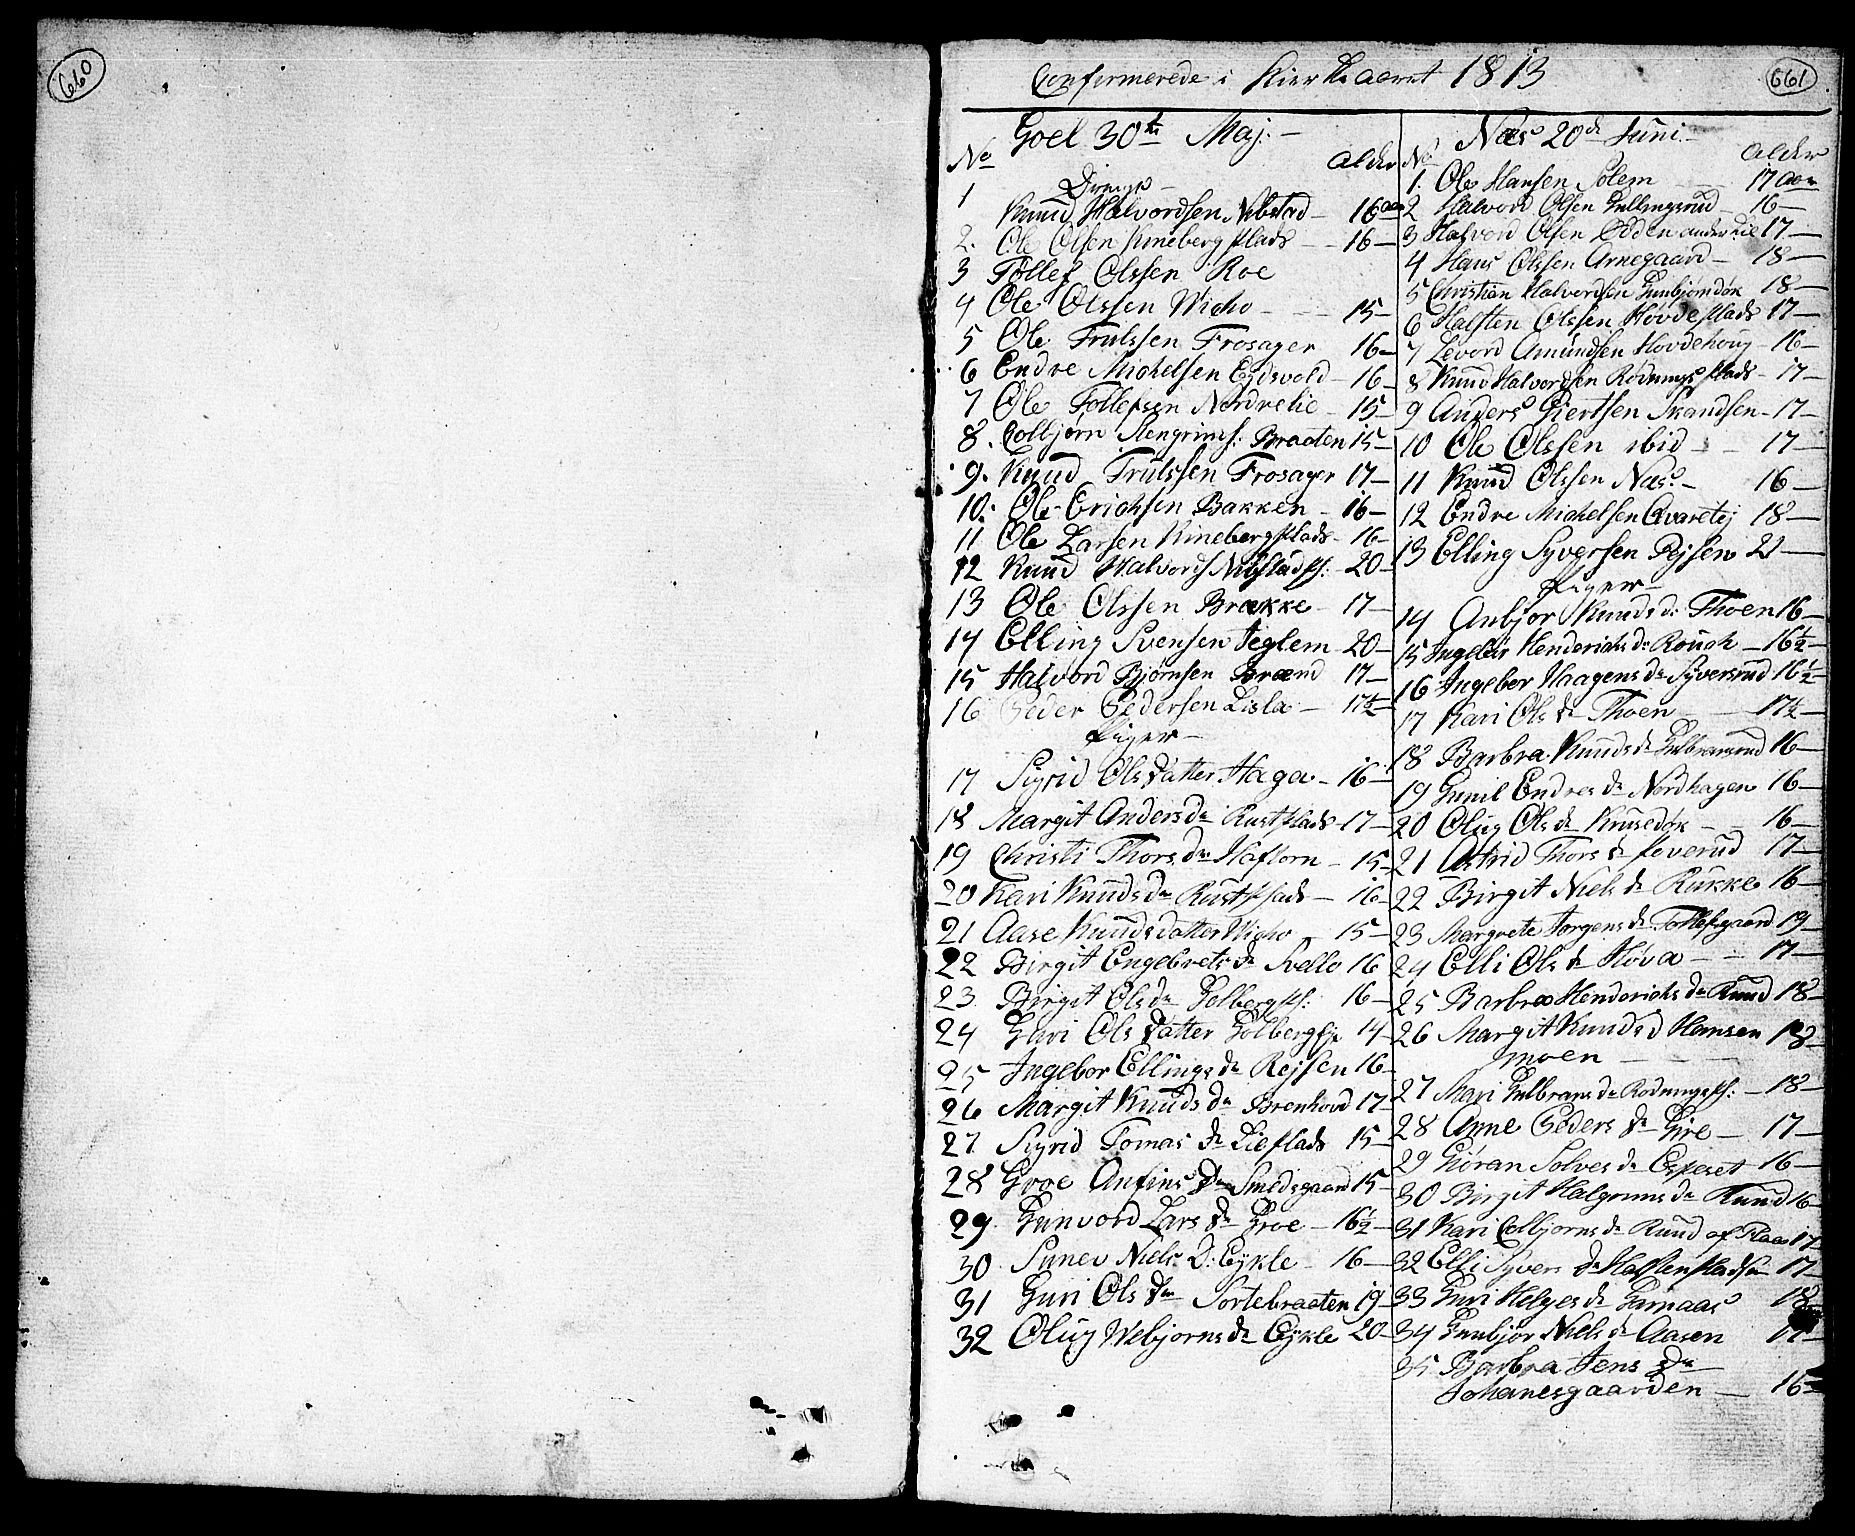 660
661
Confirmerede i Kirkeaaret 1813
Goel 30te Maj. —
No Alder
Drenge —
1 Knud Halvordsen Nibstad — 16 aar
2. Ole Olsen Kinebergplads — 16 —
3 Tollef Olssen Roe
4 Ole Olssen Wicho — 15 —
5 Ole Trulssen Frosager 16 —
6 Endre Michelsen Eydsvold — 16 —
7 Ole Tollefsen Nordrelie — 15 —
8. Colbjørn Stengrims: Braaten 15 —
9. Knud Trulssen Frosager 17 —
10. Ole Erichsen Bakken — 16 —
11 Ole Larsen Kinebergplads — 16 —
12 Knud Halvords Nibstadpl: 20 —
13 Ole Olssen Brække — 17 —
14 Elling Svensen Teglem 20 —
15 Halvord Bjørnsen Brænd 17 —
16 Peder Pedersen Lisla — 17½ —
Piger —
17 Sigrid Olsdatter Haga — 16 —
18 Margit Andersdr Rustplads — 17 —
19 Christi Thorsdr Haftorn — 15 —
20 Kari Knudsdr Rustplads — 16 —
21 Aase Knudsdatter Wicho 15 —
22 Birgit Engebretsdr Svello 16
23. Birgit Olsdr Golbergpl: 16 —
24 Guri Olsdatter Golbergpl 14 —
25 Ingebor Ellingsdr Rejsen 16 —
26 Margit Knudsdr Brenhovd 17 —
27 Sigrid Tomasdr Lieplads 15 —
28 Groe Anfinsdr Smedsgaard 15 —
29. Gunvord Larsdr Groe — 16½ —
30 Sunev Niels D: Eykle — 16 —
31 Guri Olsdr Sortebraaten 19 —
32 Olug Webjornsdr Eykle 20 —
Næs 20de Juni —
No Alder
1. Ole Hansen Solem 17 aar
2 Halvord Olsen Gullingsrud — 16 —
3 Halvord Olsen Dden 17 —
4 Hans Olssen Arnegaard — 18 —
5 Christian Halvordsen Gunbjørndøk 18 —
6 Halsten Olssen Hovdeplads 17 —
7 Levord Amundsen Hovdehoug — 16 —
8 Knud Halvordsen Rodningsplads — 17 —
9 Anders Giertsen Skandsen — 17 —
10 Ole Olssen ibid — 17 —
11 Knud Olssen Næs — 16 —
12 Endre Michelsen 18 —
13 Elling Syversen Rejsen 21 —
Piger —
14 Anbjør Knudsdr Thoen 16 —
15 Ingebor Henderichsdr Rouch — 16½ —
16 Ingebor Haagensdr Syversrud 16½ —
17 Kari Olsdr Thoen 17½ —
18 Barbra Knudsdr Gulbransrud 16 —
19 Gunil Endresdr Nordhagen 16 —
20 Olug Olsdr Knusedøk — 16 —
21 Astrid Thorsdr Severud 17 —
22 Birgit Nielsdr Rukke 16 —
23 Margrete Jorgensdr Tollefsgaard 19 —
24 Elli Olsdr Hova — 17 —
25 Barbra Henderichsdr Ruud 18 —
26 Margit Knudsd Hansen 18 —
moen —
27 Mari Gulbransdr Rodningspl: — 18 —
28 Anne Pedersdr Gire — 17 —
29 Giøran Solvesdr Espeset 16 —
30 Birgit Halgrimsdr Ruud 16 —
31 Kari Colbjornsdr Ruud af Flaa 17 —
32 Elli Syversdr 17 —
33 Guri Helgesdr Garnaas 18
34 Gunbjør Nielsdr Aasen 17 —
35 Barbra Jensdr
Johanesgaarden — 16 —